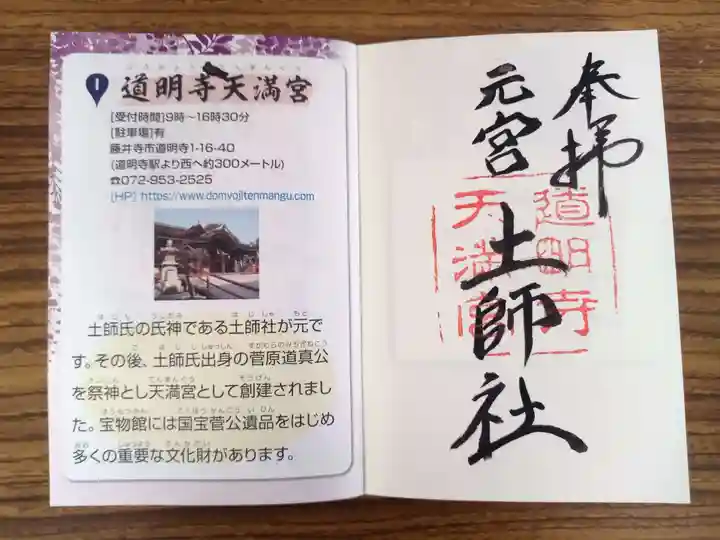 1 道明寺天満宮
[受付時間]9時～16時30分
[駐車場]有
藤井寺市道明寺1-16-40
(道明寺駅より西へ約300メートル)
☎072-953-2525
[HP] https://www.domyojitenmangu.com
土師氏の氏神である土師社が元で
す。その後、土師氏出身の菅原道真公
を祭神とし天満宮として創建されまし
た。宝物館には国宝菅公遺品をはじめ
多くの重要な文化財があります。
奉拝
元宮
土師社
道明寺
天満宮